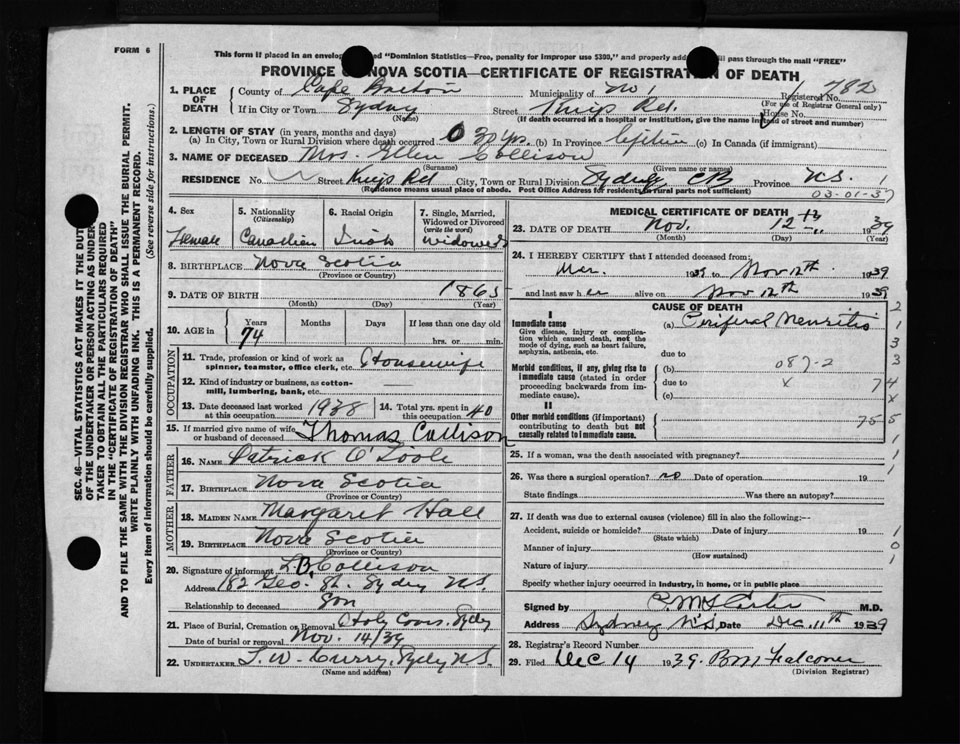 FORM 6
This form if placed in an envelop ed "Dominion Statistics—Free, penalty for improper use $300," and properly add ill pass through the mail "FREE"
PROVINCE NOVA SCOTIA—CERTIFICATE OF REGISTRAT N OF DEATH
1. PLACE OF DEATH County of Cape Breton Municipality of No 1 Registered No. 782
(For use of Registrar General only)
If in City or Town Sydney Street Kings Rd. House No.
(Name) (If death occurred in a hospital or institution, give the name instead of street and number)
2. LENGTH OF STAY (in years, months and days)
(a) In City, Town or Rural Division where death occurred 30 yrs. (b) In Province Lifetime (c) In Canada (if immigrant)
3. NAME OF DECEASED Mrs. Ellen Collison
(Surname) (Given name or names)
RESIDENCE No. Street Kings Rd City, Town or Rural Division Sydney CB Province N.S.
(Residence means usual place of abode. Post Office Address for residents in rural parts not sufficient) 03-01-37
4. Sex Female
5. Nationality (Citizenship) Canadian
6. Racial Origin Irish
7. Single, Married, Widowed or Divorced (write the word) widowed
8. BIRTHPLACE Nova Scotia
(Province or Country)
9. DATE OF BIRTH 1865
(Month) (Day) (Year)
10. AGE in Years 74 Months Days If less than one day old
hrs. or min.
OCCUPATION
11. Trade, profession or kind of work as spinner, teamster, office clerk, etc. Housewife
12. Kind of industry or business, as cotton-mill, lumbering, bank, etc.
13. Date deceased last worked at this occupation 1938 14. Total yrs. spent in this occupation 40
15. If married give name of wife or husband of deceased Thomas Collison
FATHER
16. NAME Patrick O'Toole
17. BIRTHPLACE Nova Scotia
(Province or Country)
MOTHER
18. MAIDEN NAME Margaret Hall
19. BIRTHPLACE Nova Scotia
(Province or Country)
20. Signature of informant L.B. Collison
Address 182 Geo. St. Sydney N.S.
Relationship to deceased Son
21. Place of Burial, Cremation or Removal Holy Cross, Sydney
Date of burial or removal Nov. 14/39
22. UNDERTAKER T. W. Curry, Sydney N.S.
(Name and address)
MEDICAL CERTIFICATE OF DEATH
23. DATE OF DEATH Nov. 12th 1939
(Month) (Day) (Year)
24. I HEREBY CERTIFY that I attended deceased from:
Mar. 1939 to Nov 12th 1939
and last saw her alive on Nov 12th 1939
CAUSE OF DEATH
I
Immediate cause (a) Periferal Neuritis
Give disease, injury or complication which caused death, not the mode of dying, such as heart failure, asphyxia, asthenia, etc.
due to
Morbid conditions, if any, giving rise to immediate cause (stated in order proceeding backwards from immediate cause). (b) 087-2
due to x
(c)
II
Other morbid conditions (if important) contributing to death but not causally related to immediate cause.
2
1
3
3
74
x
755
1
1
25. If a woman, was the death associated with pregnancy?
26. Was there a surgical operation? no Date of operation 19 1
State findings Was there an autopsy?
27. If death was due to external causes (violence) fill in also the following:—
Accident, suicide or homicide? Date of injury 19 1
(State which)
Manner of injury 0
(How sustained)
Nature of injury 1
Specify whether injury occurred in industry, in home, or in public place
Signed by M.D.
Address Sydney N.S. Date Dec. 11th 1939
28. Registrar's Record Number
29. Filed Dec 14 1939. BM Falconer
(Division Registrar)
SEC. 46—VITAL STATISTICS ACT MAKES IT THE DUT
OF THE UNDERTAKER OR PERSON ACTING AS UNDER
TAKER TO OBTAIN ALL THE PARTICULARS REQUIRED
IN THE "CERTIFICATE OF REGISTRATION OF DEATH"
AND TO FILE THE SAME WITH THE DIVISION REGISTRAR WHO SHALL ISSUE THE BURIAL PERMIT.
WRITE PLAINLY WITH UNFADING INK. THIS IS A PERMANENT RECORD.
Every item of information should be carefully supplied. (See reverse side for instructions.)